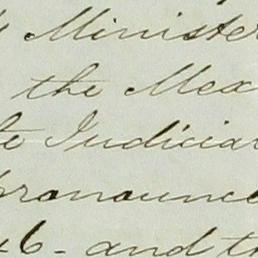 Minister
the Mex
te Judicial
pronounce
46 - and th